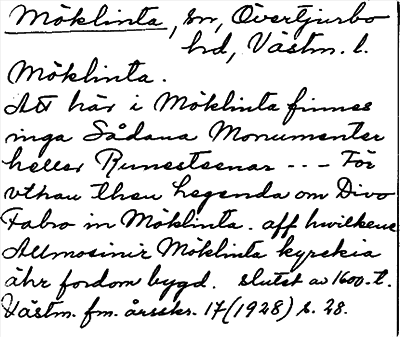 Möklinta, sn, Övertjurbo
hd, Västm. l.
Möklinta.
Att här i Möklinta finnes
inga Sådana Monumenter
heller Runestenar --- För
vthan then hegenda om Divo
Fabro in Möklinta. aff hwilkens
Allmosinir Möklinta kyrckia
ähr fordom bygd. slutet av 1600-t.
Västm. fm. årsskr. 17 (1928) s. 28.